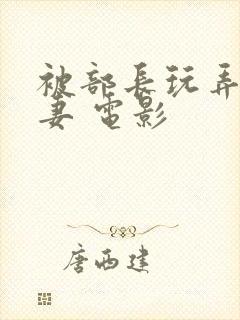 被部長玩弄
妻 電影
唐西建